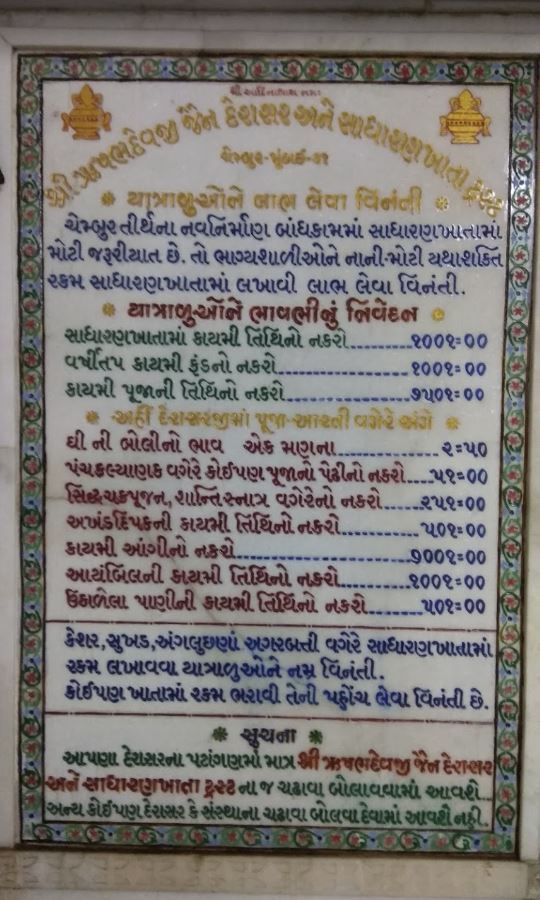 શ્રી આદિનાથાય નમઃ
શ્રી ઋષભદેવજી જૈન દેરાસર અને સાધારણખાતા ટ્રસ્ટ
ચેમ્બુર-મુંબઈ-૭૧
યાત્રાળુઓને લાભ લેવા વિનંતી
ચેમ્બુરતીર્થના નવનિર્માણ બાંધકામમાં સાધારણખાતામાં
મોટી જરૂરીયાત છે. તો ભાગ્યશાળીઓને નાની-મોટી યથાશક્તિ
રકમ સાધારણખાતામાં લખાવી લાભ લેવા વિનંતી.
યાત્રાળુઓને ભાવભીનું નિવેદન
સાધારણખાતામાં કાયમી તિથિનો નકરો..........૧૦૦૧=૦૦
વર્ષીતપ કાયમી ફંડનો નકરો....................૧૦૦૧=૦૦
કાયમી પૂજાની તિથિનો નકરો....................૭૫૦૧=૦૦
અહીં દેરાસરજીમાં પૂજા-આરતી વગેરે અંગે
ઘી ની બોલીનો ભાવ એક મણના....................૨=૫૦
પંચકલ્યાણક વગેરે કોઈપણ પૂજાનો પેઢીનો નકરો.....૫૧=૦૦
સિધ્ધચક્રપૂજન, શાન્તિસ્નાત્ર વગેરેનો નકરો.......૨૫૧=૦૦
અખંડદિપકની કાયમી તિથિનો નકરો...............૫૦૧=૦૦
કાયમી આંગીનો નકરો.........................૭૦૦૧=૦૦
આયંબિલની કાયમી તિથિનો નકરો...............૧૦૦૧=૦૦
ઉકાળેલા પાણીની કાયમી તિથિનો નકરો..........૫૦૧=૦૦
કેશર, સુખડ, અંગલુછણાં અગરબત્તી વગેરે સાધારણખાતામાં
રકમ લખાવવા યાત્રાળુઓને નમ્ર વિનંતી.
કોઈપણ ખાતામાં રકમ ભરાવી તેની પહોંચ લેવા વિનંતી છે.
સુચના
આપણા દેરાસરના પટાંગણમાં માત્ર શ્રી ઋષભદેવજી જૈન દેરાસર
અને સાધારણખાતા ટ્રસ્ટ ના જ ચઢાવા બોલાવવામાં આવશે.
અન્ય કોઈપણ દેરાસર કે સંસ્થાના ચઢાવા બોલવા દેવામાં આવશે નહી.